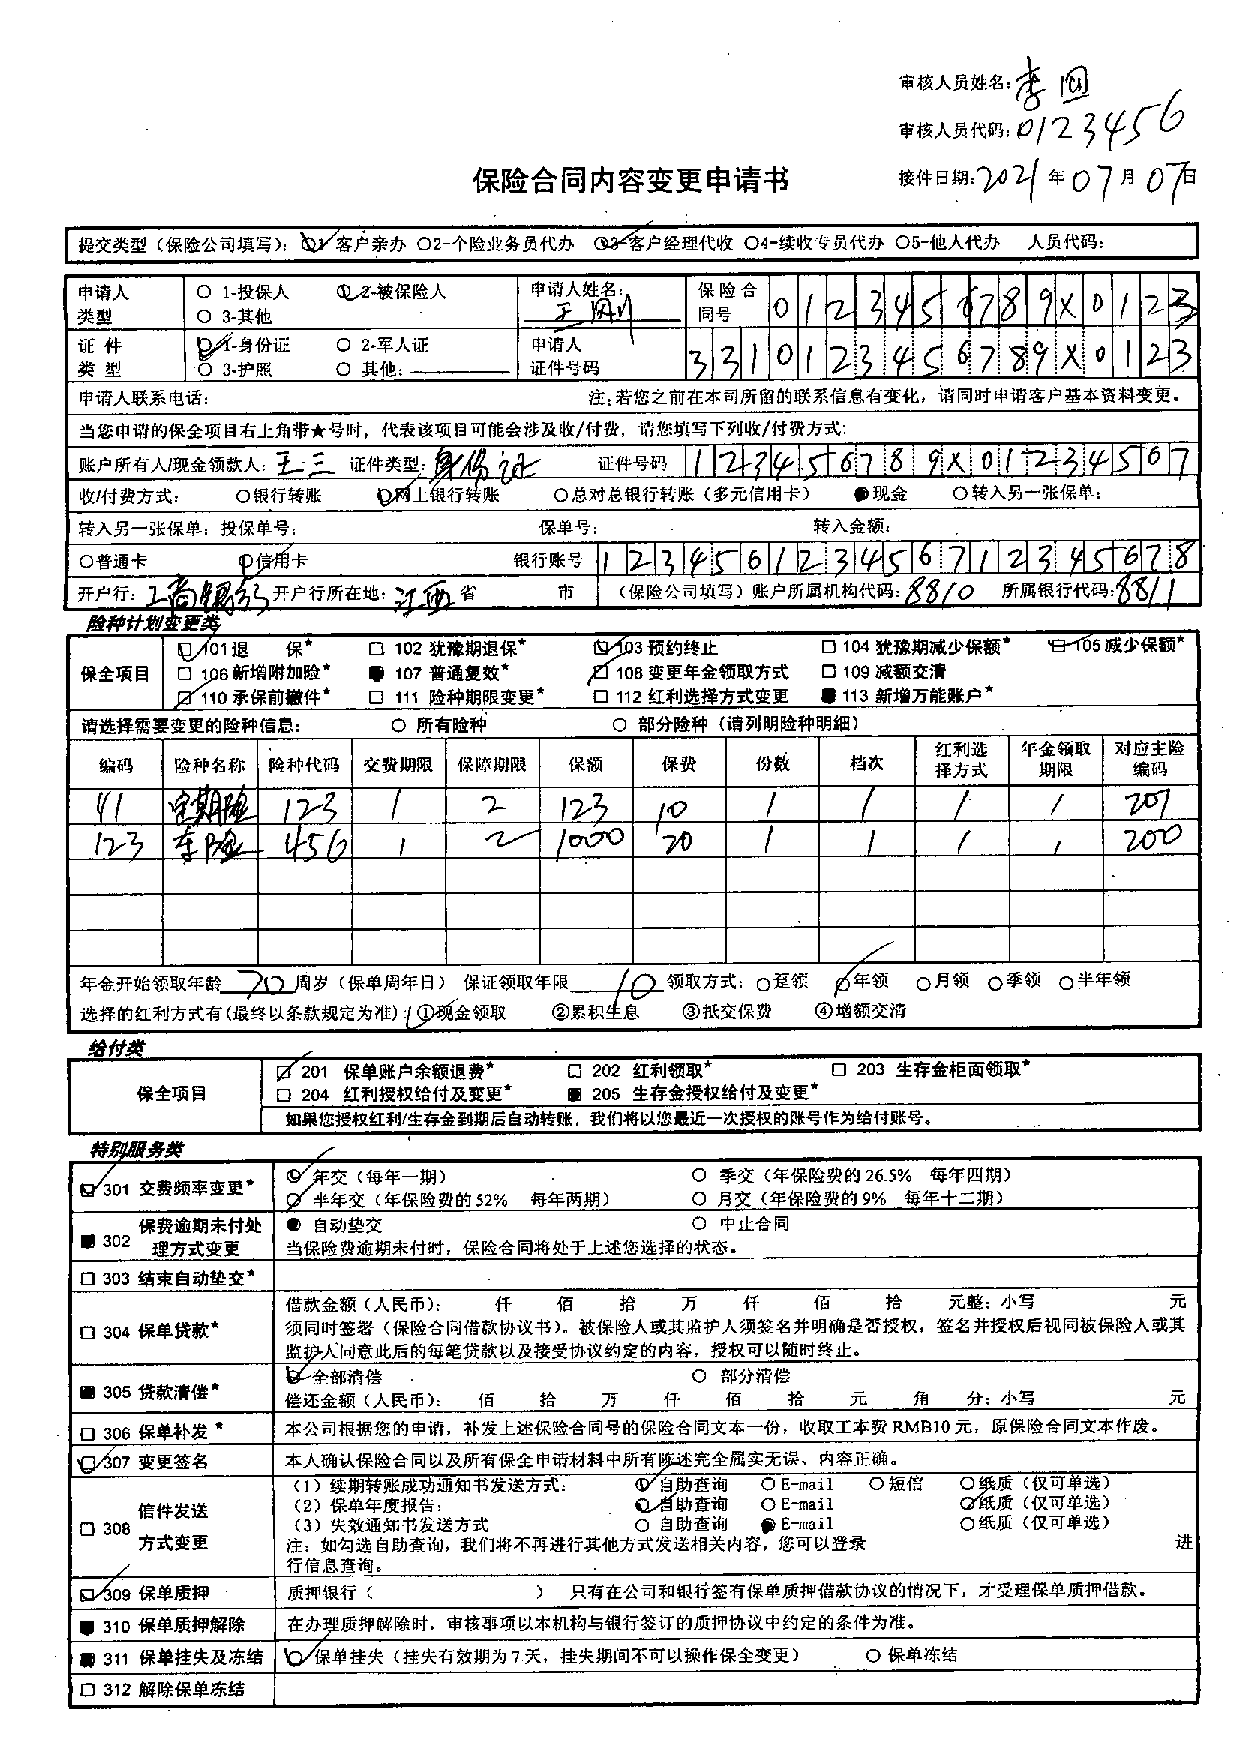 审核人员姓名：李四
审核人员代码：0123456
接件日期：2021年07月07日
保险合同内容变更申请书
提交类型（保险公司填写）：○1-客户亲办 ○2-个险业务员代办 ○3-客户经理代收 ○4-续收专员代办 ○5-他人代办 人员代码：
申请人类型 ○ 1-投保人 ○ 2-被保险人 ○ 3-其他 申请人姓名： 保险合同号 0123456789X0123
证件类型 ○ 1-身份证 ○ 2-军人证 ○ 3-护照 ○ 其他： 申请人证件号码 3310123456789X0123
申请人联系电话： 注：若您之前在本司所留的联系信息有变化，请同时申请客户基本资料变更。
当您申请的保全项目右上角带★号时，代表该项目可能会涉及收/付费，请您填写下列收/付费方式：
账户所有人/现金领款人：王三 证件类型：身份证 证件号码 123456789X01234567
收/付费方式： ○银行转账 ○网上银行转账 ○总对总银行转账（多元信用卡） ●现金 ○转入另一张保单：
转入另一张保单：投保单号： 保单号： 转入金额：
○普通卡 ○信用卡 银行账号 123456123456712345678
开户行：工商银行 开户行所在地：江西省 市 （保险公司填写）账户所属机构代码：8810 所属银行代码：8811
险种计划变更类
保全项目 □101退 保★ □ 102 犹豫期退保★ □103 预约终止 □ 104 犹豫期减少保额★ □105减少保额★
□ 106新增附加险★ ■ 107 普通复效★ □ 108 变更年金领取方式 □ 109 减额交清
□110 承保前撤件★ □ 111 险种期限变更★ □ 112 红利选择方式变更 ■ 113 新增万能账户★
请选择需要变更的险种信息： ○ 所有险种 ○ 部分险种（请列明险种明细）
编码 险种名称 险种代码 交费期限 保障期限 保额 保费 份数 档次 红利选择方式 年金领取期限 对应主险编码
定期险 123 1 2 123 10 1 1 1 1 201
123 车险 456 1 2 1000 20 1 1 1 1 200
年金开始领取年龄 70 周岁（保单周年日） 保证领取年限 10 领取方式：○趸领 ○年领 ○月领 ○季领 ○半年领
选择的红利方式有(最终以条款规定为准)：①现金领取 ②累积生息 ③抵交保费 ④增额交清
给付类
保全项目 □ 201 保单账户余额退费★ □ 202 红利领取★ □ 203 生存金柜面领取★
□ 204 红利授权给付及变更★ ■ 205 生存金授权给付及变更★
如果您授权红利/生存金到期后自动转账，我们将以您最近一次授权的账号作为给付账号。
特别服务类
□301 交费频率变更★ ○ 年交（每年一期） ○ 季交（年保险费的26.5% 每年四期）
○ 半年交（年保险费的52% 每年两期） ○ 月交（年保险费的9% 每年十二期）
■ 302 保费逾期未付处理方式变更 ● 自动垫交 ○ 中止合同
当保险费逾期未付时，保险合同将处于上述您选择的状态。
□ 303 结束自动垫交★
□ 304 保单贷款★ 借款金额（人民币）： 仟 佰 拾 万 仟 佰 拾 元整；小写 元
须同时签署（保险合同借款协议书）。被保险人或其监护人须签名并明确是否授权，签名并授权后视同被保险人或其
监护人同意此后的每笔贷款以及接受协议约定的内容，授权可以随时终止。
■ 305 贷款清偿★ ○全部清偿 ○ 部分清偿
偿还金额（人民币）： 佰 拾 万 仟 佰 拾 元 角 分；小写 元
□ 306 保单补发★ 本公司根据您的申请，补发上述保险合同号的保险合同文本一份，收取工本费RMB10元，原保险合同文本作废。
□307 变更签名 本人确认保险合同以及所有保全申请材料中所有陈述完全属实无误、内容正确。
□ 308 信件发送方式变更 （1）续期转账成功通知书发送方式： ○自助查询 ○E-mail ○短信 ○纸质（仅可单选）
（2）保单年度报告： ○自助查询 ○E-mail ○纸质（仅可单选）
（3）失效通知书发送方式 ○ 自助查询 ●E-mail ○纸质（仅可单选）
注：如勾选自助查询，我们将不再进行其他方式发送相关内容，您可以登录 进
行信息查询。
□309 保单质押 质押银行（ ） 只有在公司和银行签有保单质押借款协议的情况下，才受理保单质押借款。
■ 310 保单质押解除 在办理质押解除时，审核事项以本机构与银行签订的质押协议中约定的条件为准。
■ 311 保单挂失及冻结 ○保单挂失（挂失有效期为7天，挂失期间不可以操作保全变更） ○ 保单冻结
□ 312 解除保单冻结